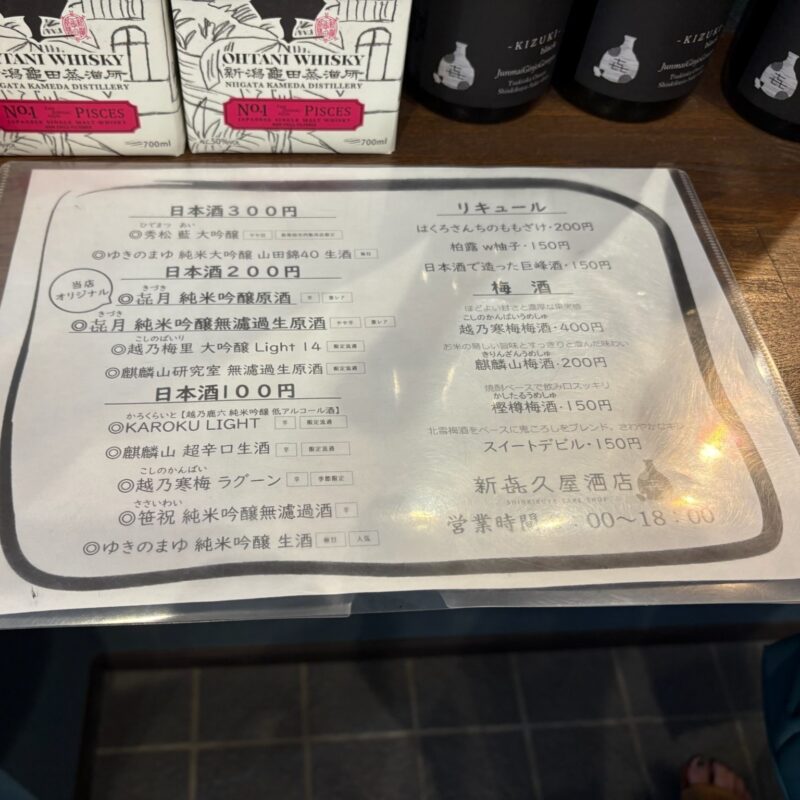 OHTANI WHISKY
新潟亀田蒸溜所
NIIGATA KAMEDA DISTILLERY
No.1 PISCES
JAPANESE SINGLE MALT WHISKY
700ml
OHTANI WHISKY
新潟亀田蒸溜所
NIIGATA KAMEDA DISTILLERY
No.1 PISCES
JAPANESE SINGLE MALT WHISKY
700ml
-KIZUKI-
black
-KIZUKI-
black
日本酒300円
ひでまつ あい
◎秀松 藍 大吟醸
◎ゆきのまゆ 純米大吟醸 山田錦40 生酒
日本酒200円
当店
オリジナル
きづき
◎㐂月 純米吟醸原酒
きづき
◎㐂月 純米吟醸無濾過生原酒
こしのばいり
◎越乃梅里 大吟醸 Light 14 限定流通
◎麒麟山研究室 無濾過生原酒 限定流通
日本酒100円
かろくらいと【越乃鹿六 純米吟醸 低アルコール酒】
◎KAROKU LIGHT 辛 限定流通
◎麒麟山 超辛口生酒 辛 限定流通
こしのかんばい
◎越乃寒梅 ラグーン 辛 季節限定
ささいわい
◎笹祝 純米吟醸無濾過酒 辛
◎ゆきのまゆ 純米吟醸 生酒 人気
リキュール
はくろさんちのももざけ・200円
柏露 w柚子・150円
日本酒で造った巨峰酒・150円
梅 酒
ほどよい甘さと濃厚な果実感
こしのかんばいうめしゅ
越乃寒梅梅酒・400円
お米の優しい旨味とすっきりと澄んだ味わい
きりんざんうめしゅ
麒麟山梅酒・200円
焼酎ベースで飲み口スッキリ
かしたるうめしゅ
樫樽梅酒・150円
北雪梅酒をベースに鬼ころしをブレンド、さわやかなキレ
スイートデビル・150円
新㐂久屋酒店
SHINKIKUYA SAKE SHOP
営業時間 :00〜18:00